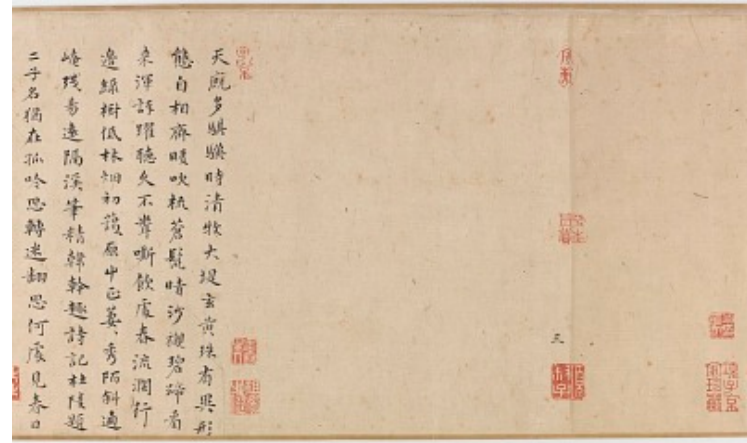 三
天廐多騏驥時清牧大堤玄黃殊有異形
態自相齊暖吹梳蒼鬣晴沙襯碧蹄看
来渾訝躍聽久不聾嘶飲處春流濶行
邊緑樹低林烟初藹原中正萋秀陌斜通
崦殘香遠隔溪筆精韓幹趣詩記杜陵題
二子名猶在孤吟思轉迷翻思何處見春日